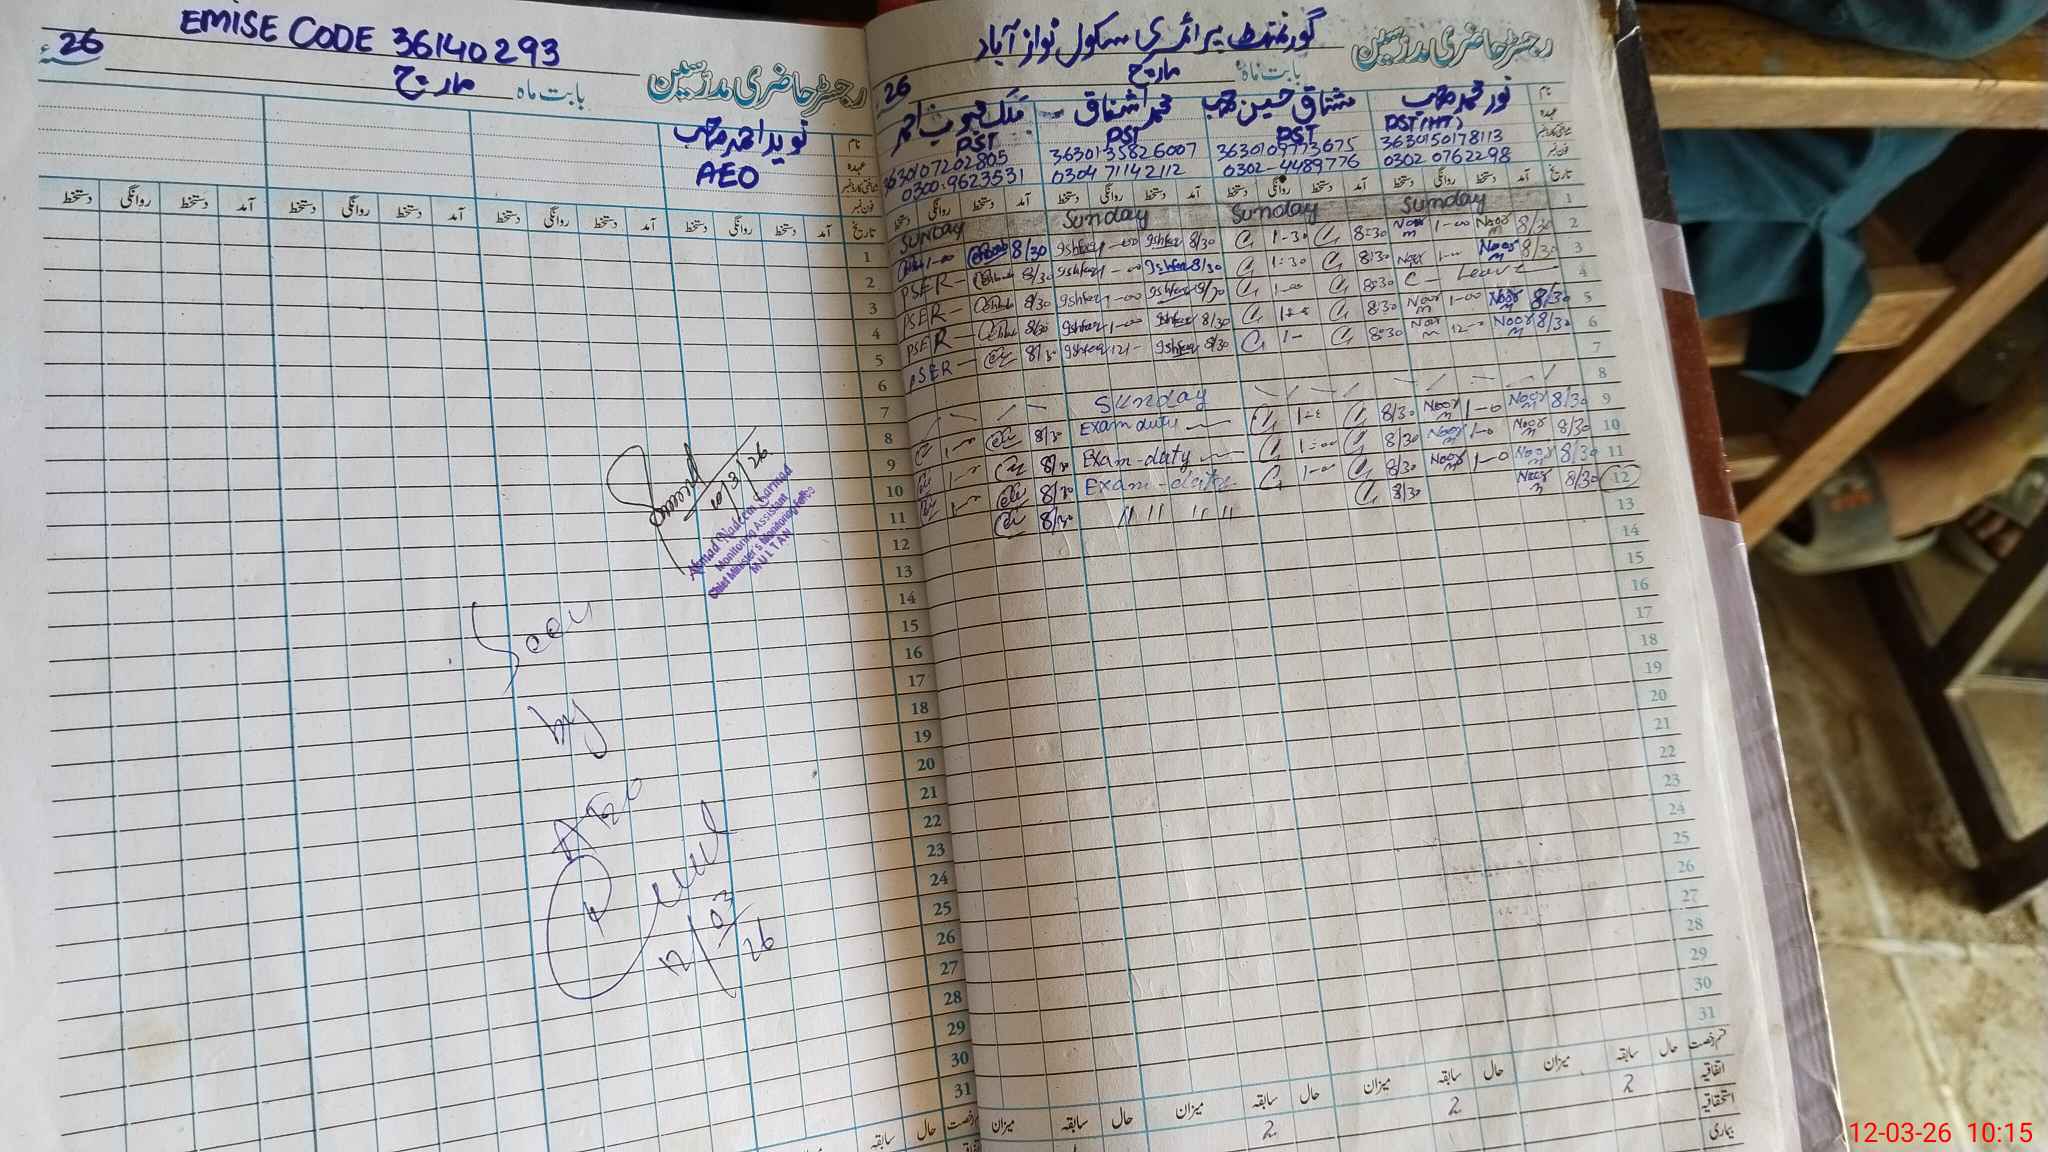 EMISE CODE 36140293
26ء
رجسٹر حاضری مدرسین
بابت ماہ مارچ
نام نوید احمد صاحب
عہدہ AEO
شناختی کارڈ نمبر
فون نمبر
تاریخ آمد دستخط روانگی دستخط آمد دستخط روانگی دستخط آمد دستخط روانگی دستخط آمد دستخط روانگی دستخط
1
2
3
4
5
6
7
8
9
10
11
12
13
14
15
16
17
18
19
20
21
22
23
24
25
26
27
28
29
30
31
10/3/26
Ahmad Nadeem Sarmad
Monitoring Assistant
Chief Minister's Monitoring Force
MULTAN
Seen
by
AEO
12/03/26
حال سابقہ میزان
رجسٹر حاضری مدرسین
گورنمنٹ پرائمری سکول نواز آباد
بابت ماہ مارچ 26
نام نور محمد صاحب مشتاق حسین صاحب محمد اشفاق ملک محبوب احمد
عہدہ PST(HT) PST PST PST
3630150178113 3630109773675 3630135826007 3630107202805
0302 0762298 0302-4489776 0304 71142112 0300-9623531
تاریخ آمد دستخط روانگی دستخط آمد دستخط روانگی دستخط آمد دستخط روانگی دستخط آمد دستخط روانگی دستخط
SUNDAY Sunday Sunday Sunday 1
1-00 8/30 Ishfaq 1-00 Ishfaq 8/30 1-30 8:30 Noor M 1-00 Noor 8/30 2
PSER- 8/30 Ishfaq 1-00 Ishfaq 8/30 1:30 8:30 Noor 1-00 Noor M 8/30 3
PSER- 8/30 Ishfaq 1-00 Ishfaq 8/30 1-00 8:30 C- Leave 4
PSER- 8/30 Ishfaq 1-00 Ishfaq 8/30 8:30 Noor M 1-00 Noor M 8/30 5
PSER- 8/30 Ishfaq 12- Ishfaq 8/30 1- 8:30 Noor M 12- Noor M 8/30 6
7
Sunday 8
8/30 Exam duty 8/30 Noor M 1-0 Noor M 8/30 9
8/30 Exam-duty 1-00 8/30 Noor M 1-0 Noor M 8/30 10
8/30 Exam-duty 1-00 8/30 Noor M 1-0 Noor M 8/30 11
8/30 11 11 11 11 8/30 Noor M 8/30 12
13
14
15
16
17
18
19
20
21
22
23
24
25
26
27
28
29
30
31
قسم رخصت حال سابقہ میزان حال سابقہ میزان حال سابقہ میزان حال سابقہ میزان
اتفاقیہ 2 2 2
استحقاقیہ
بیماری
12-03-26 10:15